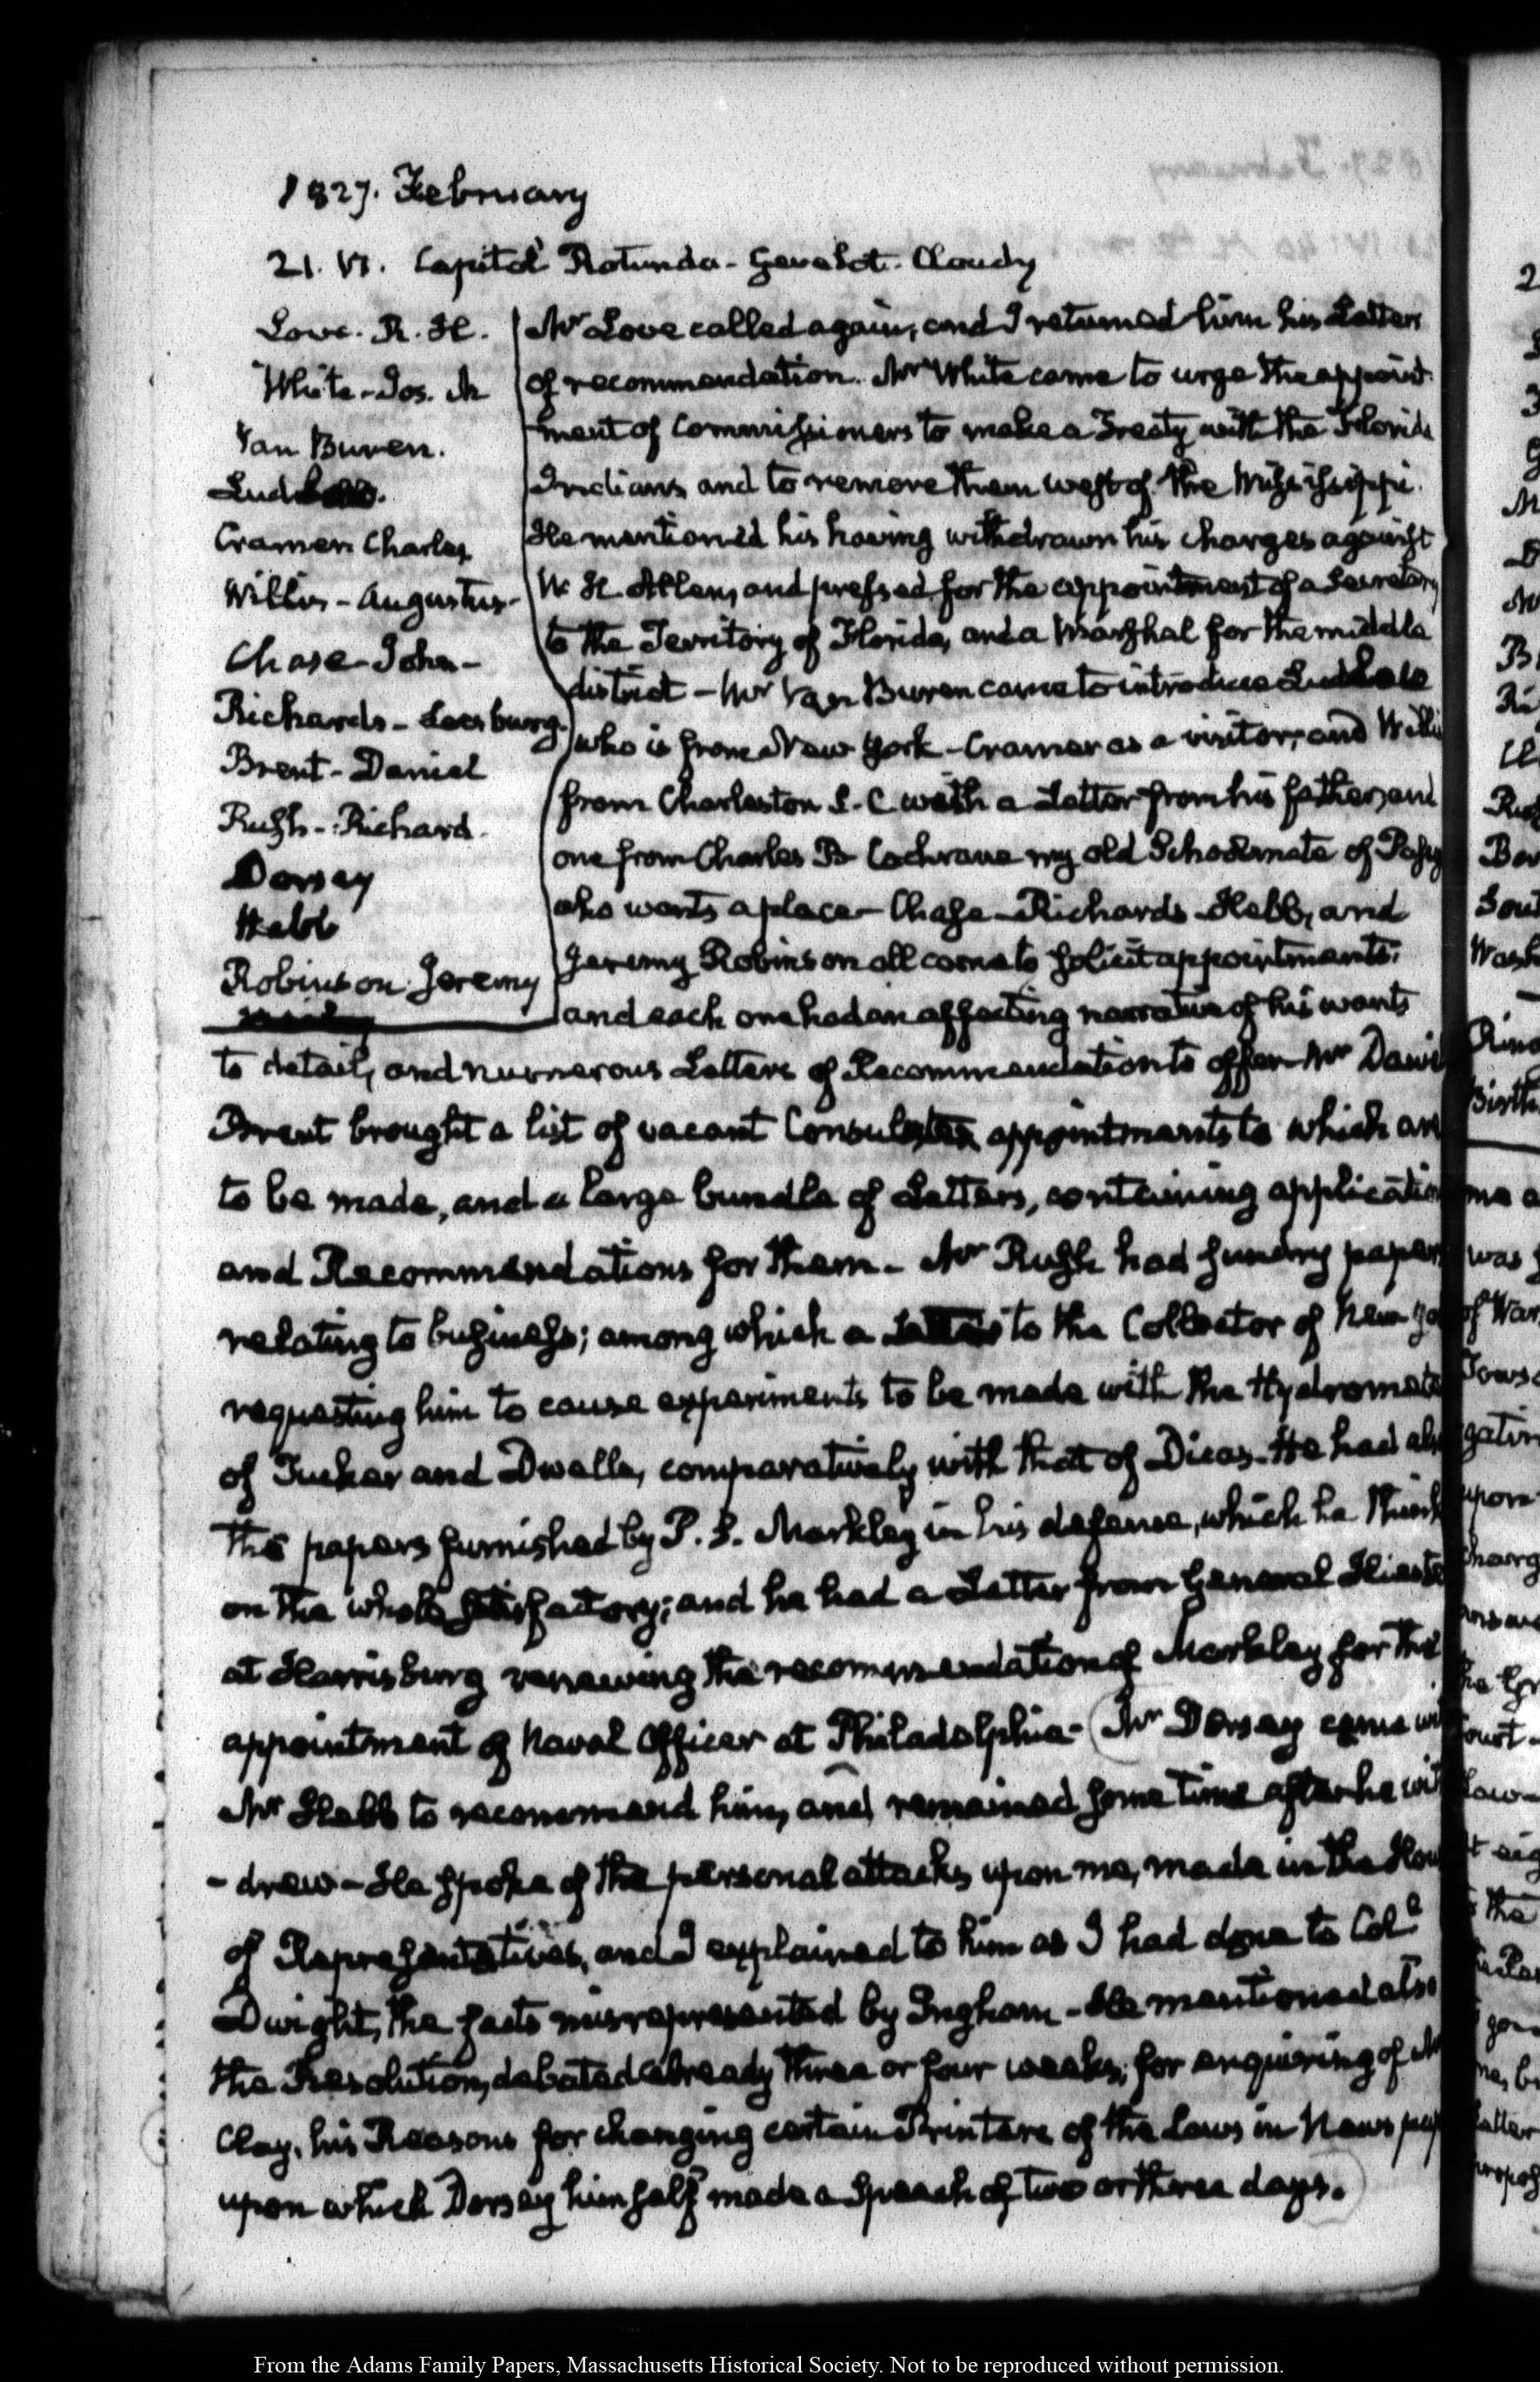 1827. February
21. VI. Capitol Rotunda - Cloudy
Love. R. H.
White - Jos. M
Van Buren.
Cramer Charles
Willis - Augustus -
Chase - John -
Richards - Leesburg
Brent - Daniel
Rush - Richard.
Dorsey
Hebb
Robinson Jeremy
Mr Love called again, and I returned him his Letters
of recommendation. Mr White came to urge the appoint-
ment of Commissioners to make a Treaty with the Florida
Indians and to remove them west of the Mississippi.
He mentioned his having withdrawn his charges against
W. H. Allen, and pressed for the appointment of a Secretary
to the Territory of Florida, and a Marshal for the middle
district - Mr Van Buren came to introduce
who is from New York - Cramer as a visitor, and Willi
from Charleston S. C with a Letter from his father, and
one from Charles B Cochrane my old Schoolmate of Passy
who wants a place - Chase - Richards - Hebb, and
Jeremy Robinson all came to solicit appointments.
and each one had an affecting narrative of his wants
to detail, and numerous Letters of Recommendation to offer - Mr Dani
Brent brought a list of vacant appointments to which are
to be made, and a large bundle of Letters, containing applicatio
and Recommendations for them - Mr Rush had sundry paper
relating to business; among which a Letter to the Collector of New Yo
requesting him to cause experiments to be made with the Hydromete
of Tucker and Dwalle, comparatively with that of Dicas - He had als
the papers furnished by P. S. Markley in his defence, which he think
on the whole satisfactory; and he had a Letter from General Hieste
at Harrisburg renewing the recommendation of Markley for the
appointment of Naval Officer at Philadelphia - (Mr Dorsey came wi
Mr Hebb to recommend him, and remained some time after he wit
- drew - He spoke of the personal attacks upon me, made in the Hou
of Representatives, and I explained to him as I had done to Coll.
Dwight, the facts misrepresented by Ingham - He mentioned also
the Resolution, debated already three or four weeks, for enquiring of M
Clay, his Reasons for changing certain Printers of the Laws in News pap
upon which Dorsey himself made a Speach of two or three days.)
From the Adams Family Papers, Massachusetts Historical Society. Not to be reproduced without permission.